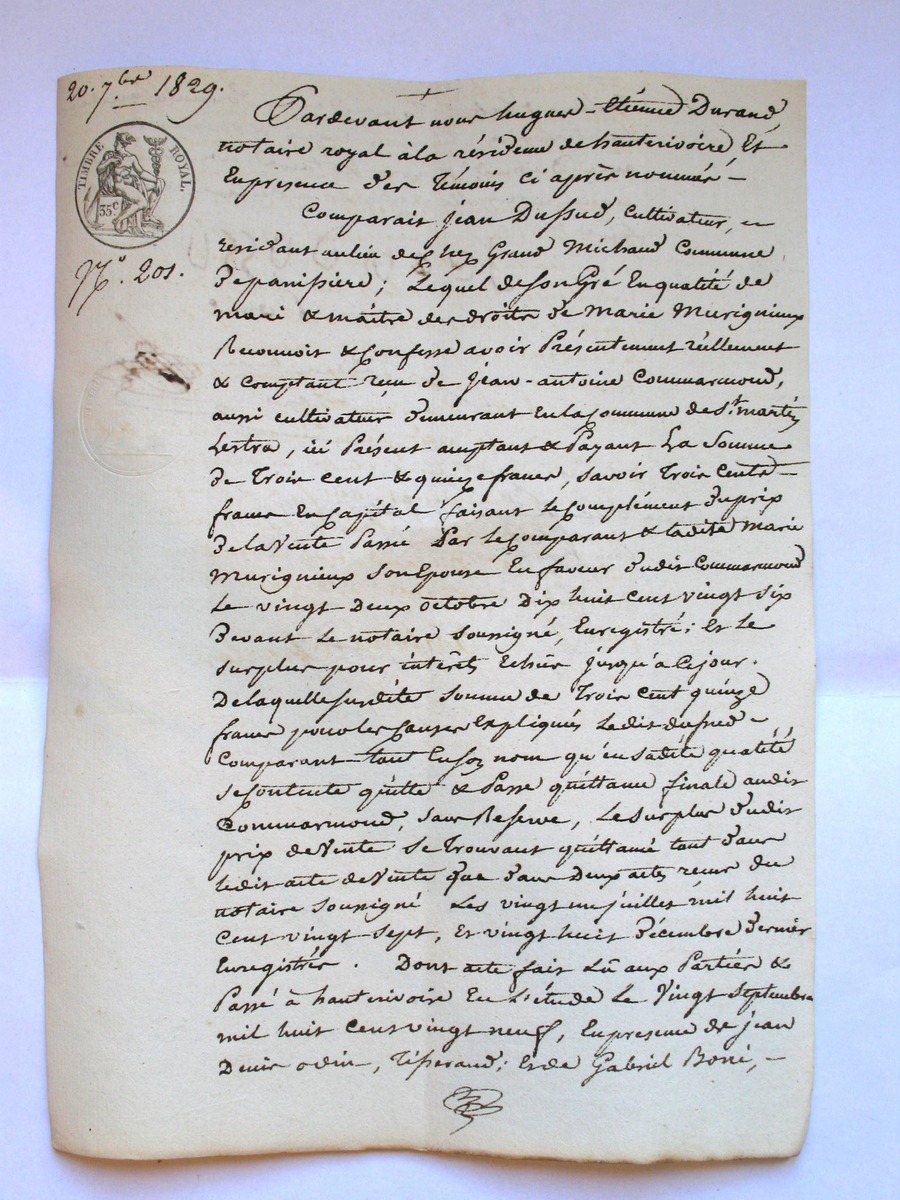 20. 7bre 1829.
TIMBRE ROYAL.
35c
No. 201.
Pardevant nous hugues-Etienne Durand,
notaire royal à la résidence de hauterivoire Et
En presence des Témoins ci après nommés –
Comparait jean Dussud, cultivateur,
residant au lieu de chez Grand Michaud Commune
de panissiere ; Lequel de son Gré En qualité de
mari & maitre des droits de Marie Murigneux
Reconnoit & Confesse avoir Présentement réellement
& comptant reçu de jean-antoine Commarmond,
aussi cultivateur demeurant En la commune de St. martin
Lestra, ici Présent acceptant & Payant La Somme
de Trois cent & quinze francs, savoir Trois Cents –
francs En Capital faisant le Complément du prix
de la Vente Passée Par le Comparant & ladite Marie
Murigneux son Epouse En faveur dudit Commarmond
Le vingt Deux octobre Dix huit cent vingt six
devant Le notaire soussigné, Enregistré ; Et Le
surplus pour intérêts Echus jusqu'a ce jour.
De laquelle susdite somme de Trois cent quinze
francs pour les Causes Expliquées Ledit dussud –
Comparant tant En son nom qu'en sadite qualité
se contente quitte & Passe quittance finale audit
Commarmond, sans Reserve, Le surplus dudit
prix de Vente se Trouvant quittancé tant dans
ledit acte de Vente que dans Deux actes recus du
notaire soussigné Les vingt un juillet mil huit
cent vingt-sept, Et vingt huit décembre dernier
Enregistrés. Dont acte fait Lû aux Parties &
Passé à hauterivoire En L'étude Le Vingt Septembre
mil huit cent vingt neuf, En presence de jean
Denis odin, Tisserand ; Et de Gabriel Borrié, –